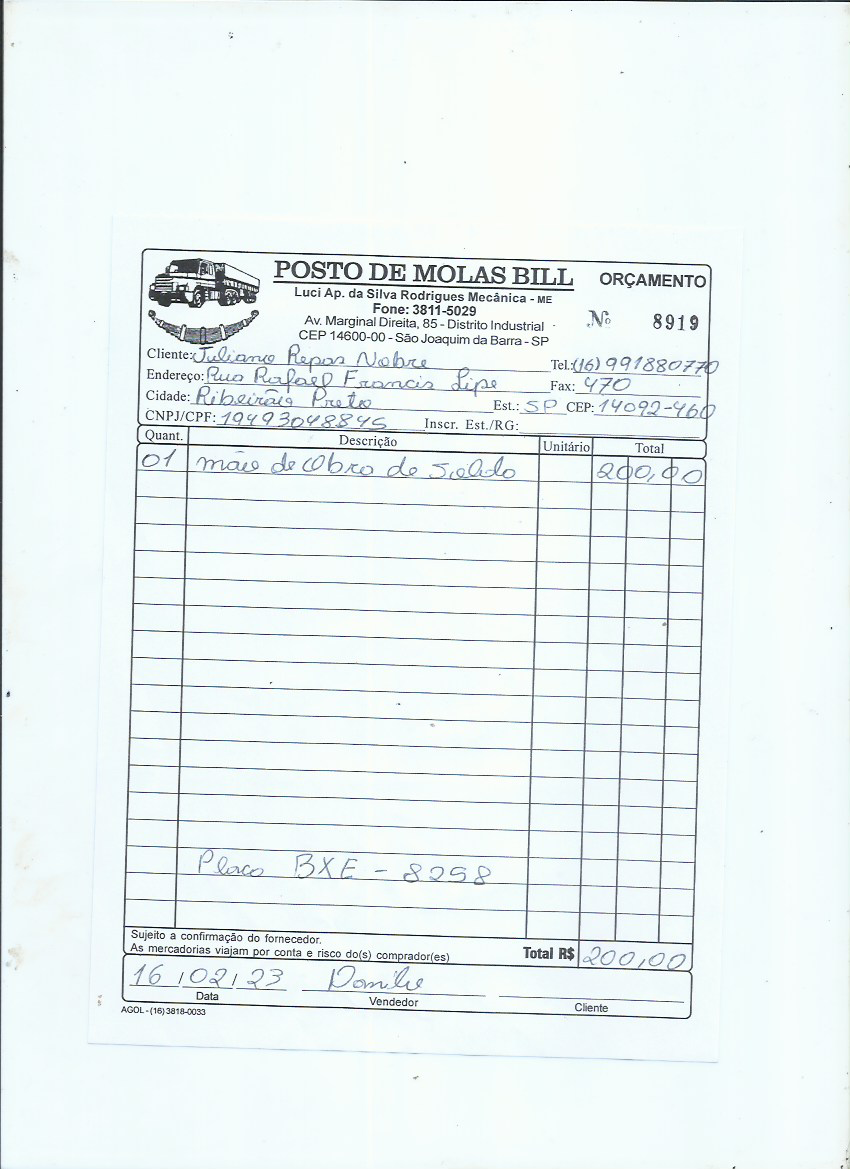 POSTO DE MOLAS BILL
ORÇAMENTO
Luci Ap. da Silva Rodrigues Mecânica - ME
Fone: 3811-5029
Av. Marginal Direita, 85 - Distrito Industrial
CEP 14600-00 - São Joaquim da Barra - SP
Nº 8919
Cliente: Juliano Repas Nobre Tel.: (16) 991880770
Endereço: Rua Rafael Francis Lipe Fax: 470
Cidade: Ribeirão Preto Est.: SP CEP: 14092-460
CNPJ/CPF: 19493048845 Inscr. Est./RG:
Quant. Descrição Unitário Total
01 mão de Obra de Solda 200,00
Placa BXE - 8258
Sujeito a confirmação do fornecedor.
As mercadorias viajam por conta e risco do(s) comprador(es)
Total R$ 200,00
16 / 02 / 23 Danilo
Data Vendedor Cliente
AGOL - (16) 3818-0033